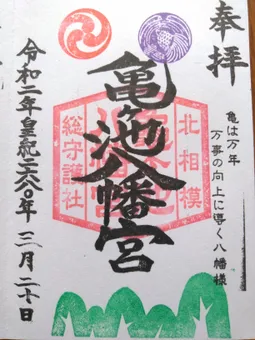 奉拝
亀は万年
万事の向上に導く八幡様
北相模
亀池八幡宮
総守護社
令和二年皇紀二六八〇年三月二十日